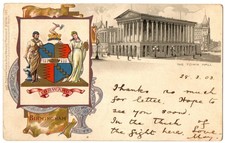 THE TOWN HALL.
28.8.03
Thanks so much
for letter. Hope to
see you soon.
In the thick of
the fight here. Love
May.
FORWARD
BIRMINGHAM